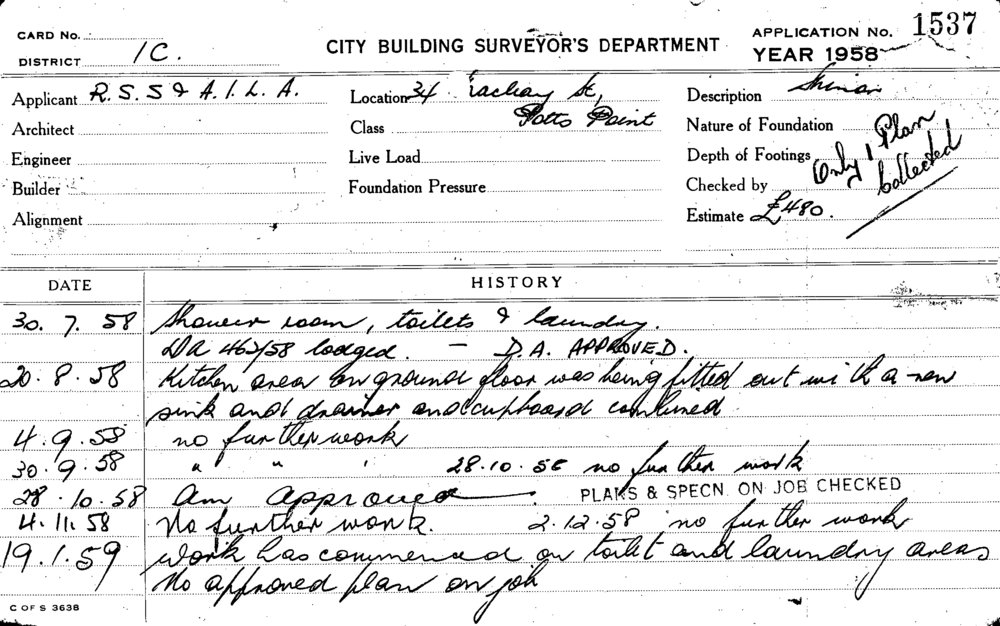 CARD No.
DISTRICT 1C.
CITY BUILDING SURVEYOR'S DEPARTMENT
APPLICATION No. 1537
YEAR 1958
Applicant R.S.S & A.I.L.A.
Location 34 St,
Potts Point
Description
Architect
Class
Nature of Foundation
Engineer
Live Load
Depth of Footings
Only 1 Plan
collected
Builder
Foundation Pressure
Checked by
Alignment
Estimate £480.
DATE HISTORY
30. 7. 58 Shower room, toilets & laundry.
DA /58 lodged. — D.A. APPROVED.
20. 8. 58 Kitchen area on ground floor was being fitted out with a new
sink and drainer and cupboard combined
4. 9. 58 no further work
30. 9. 58 " " " 28.10.58 no further work
28. 10. 58 Am approved. PLANS & SPECN. ON JOB CHECKED
4. 11. 58 No further work. 2.12.58 no further work
19. 1. 59 Work has commenced on toilet and laundry areas
No approved plan on job
C OF S 3638